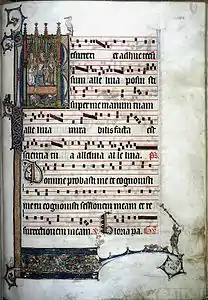 surrexi et adhuc tecū
sum alle luia posuisti
super me manum tuam
alle luia mira bilis facta est
scientia tu a alleluia al le luia
Domine probasti me et cognovisti
me tu cognovisti sessionem meam et re
surrectionem meam Gloria pa